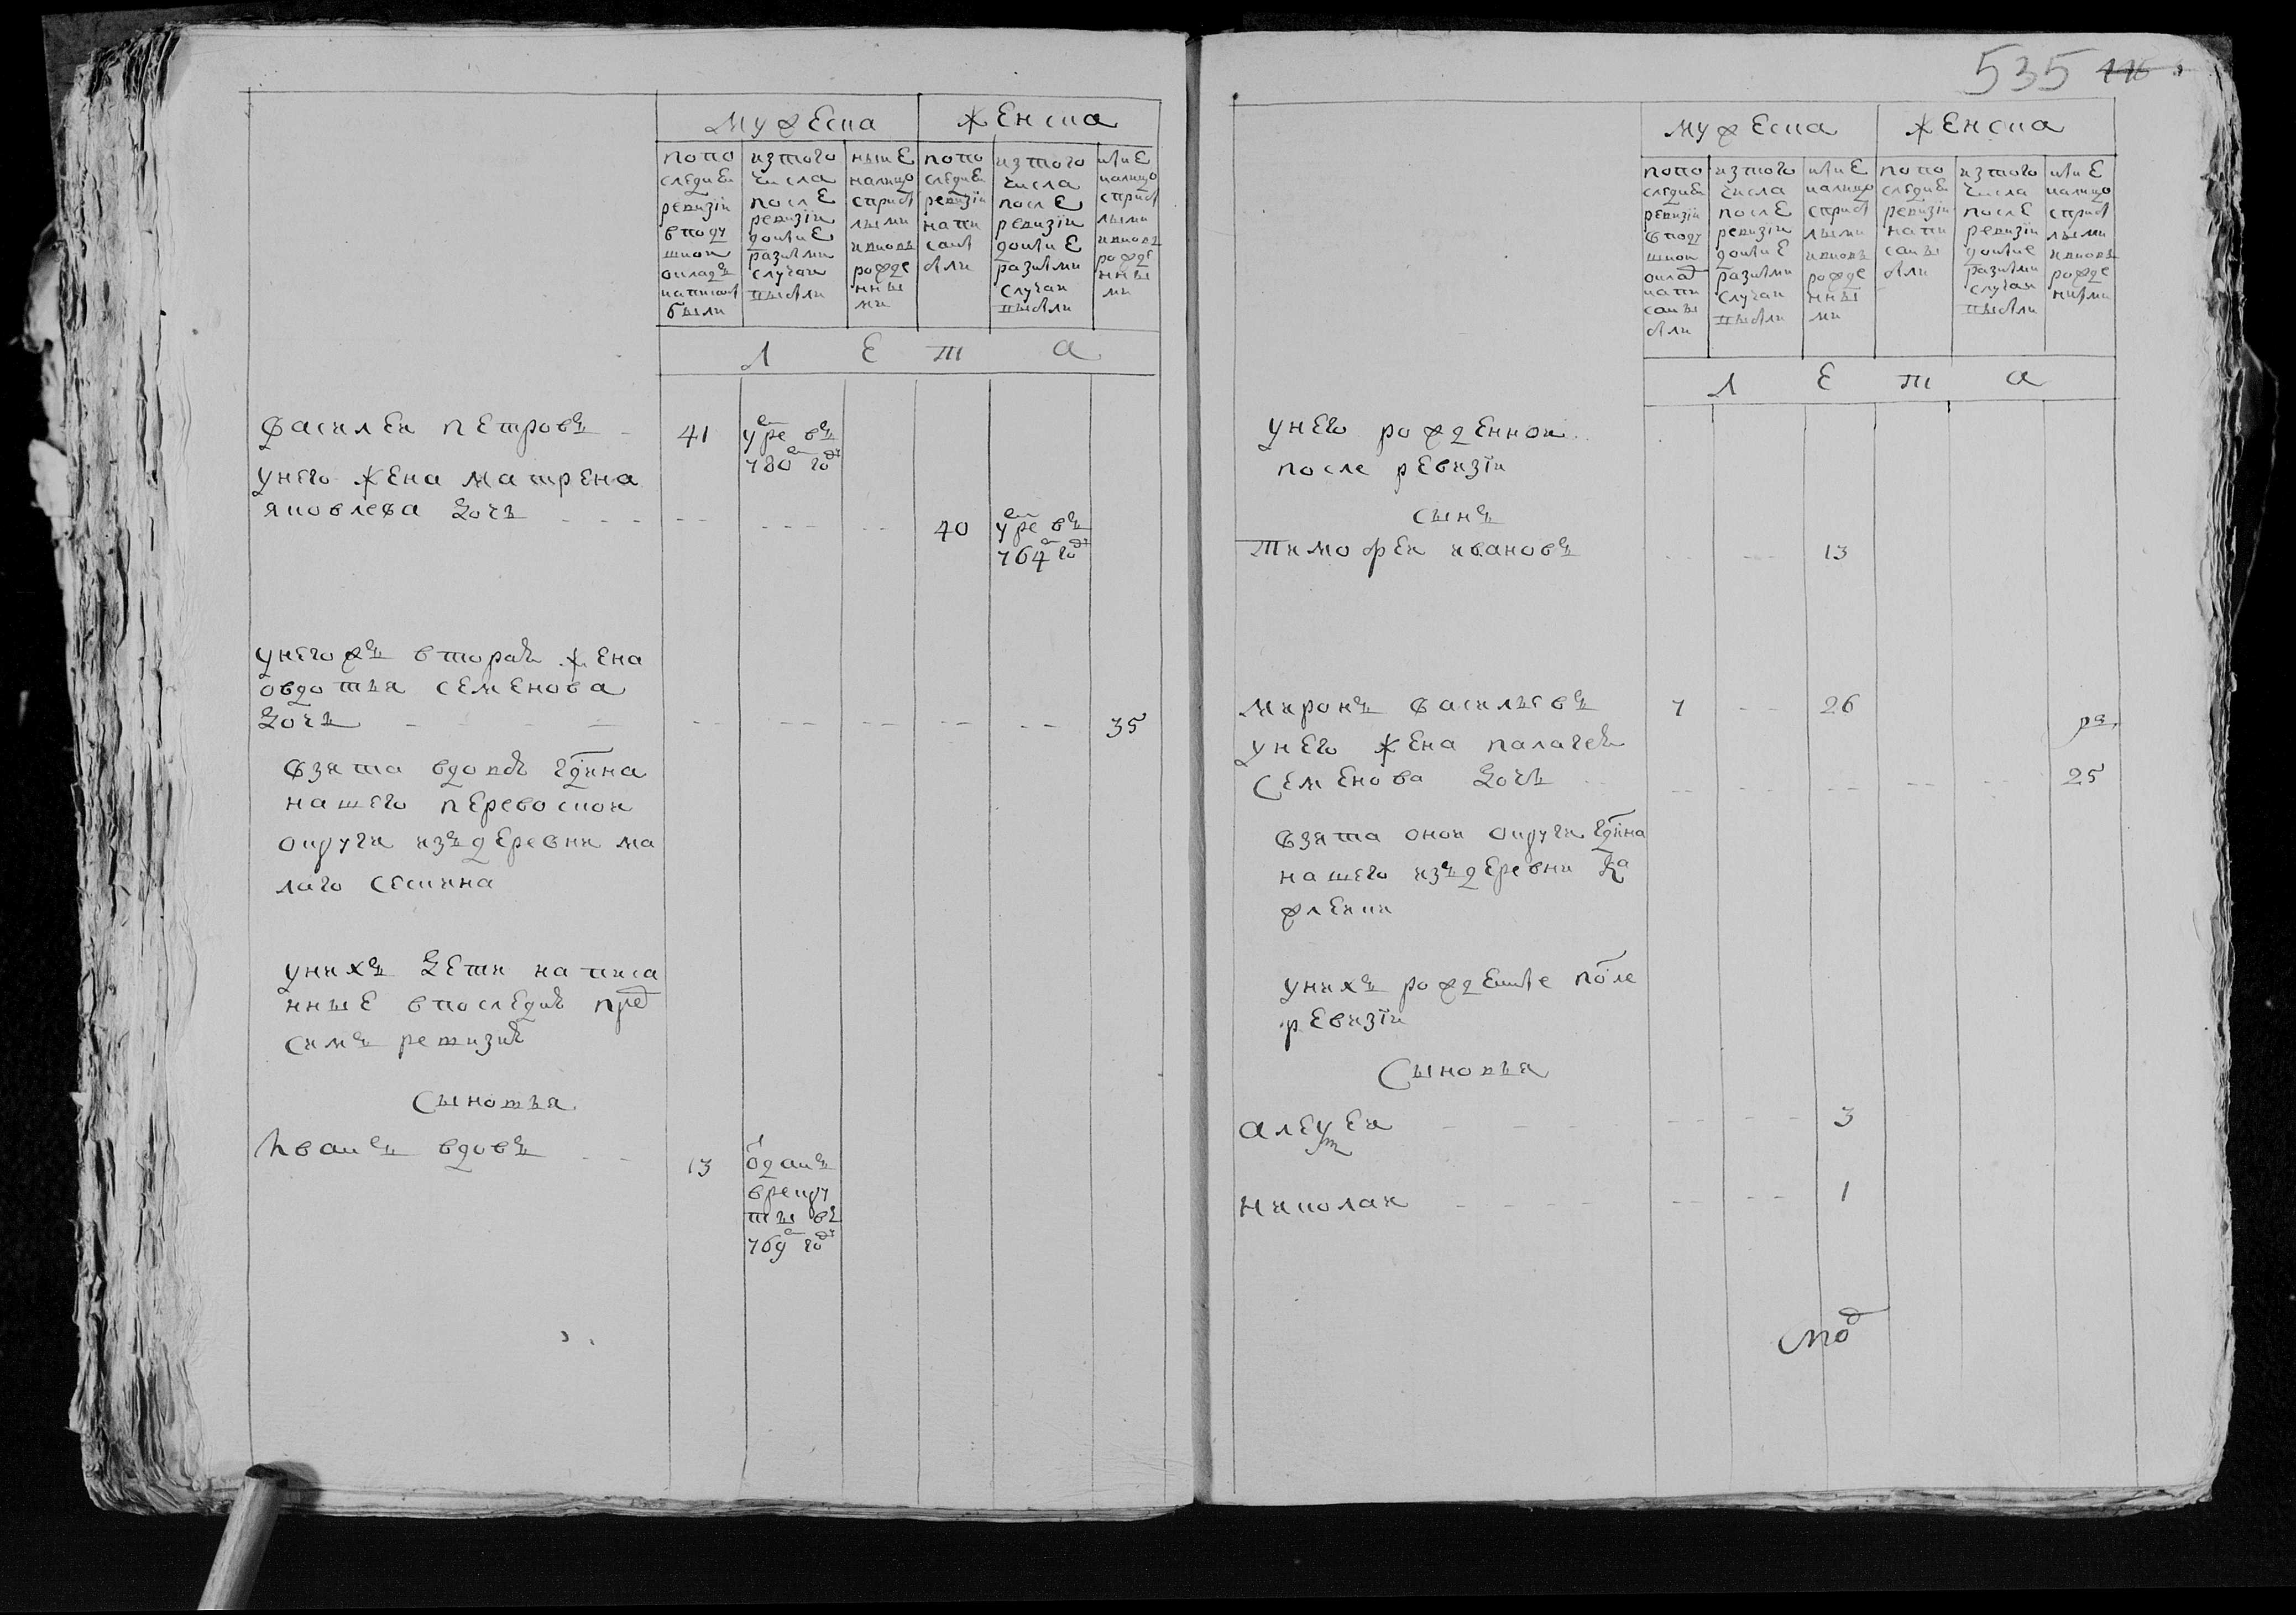 535
мужеска женска
попо следнеи ревизіи вподу шнои окладъ написаны были
изтого числа послѣ ревизіи доныне разными случаи выбыли
ныне налицо сприбылыми ивновь рожденными
попо следнеи ревизіи написаны были
изтого числа после ревизіи доныне разными случаи выбыли
ныне налицо сприбылыми ивновь рожденными
лета
василеи петровъ 41 умре въ
780 году
унего жена матрена
яковлева дочь 40 умре въ
764 году
унегожъ вторая жена
овдотья семенова
дочь 35
взята вдовой
нашего
округи издеревни ма
лаго
унихъ дети написа
нные впоследней пред
симъ ревизіи
сыновья
иванъ вдовъ 13 отданъ
врекру
ты въ
769 году
мужеска женска
попо следнеи ревизіи вподу шнои оклад написаны были
изтого числа после ревизіи доныне разными случаи выбыли
ныне налицо сприбылыми ивновь рожденными
попо следнеи ревизіи написаны были
изтого числа после ревизіи доныне разными случаи выбыли
ныне налицо сприбылыми ивновь рожденными
лета
унего рожденнои
после ревизіи
сынъ
тимофеи ивановъ 13
миронъ васильевъ 7 26
унего жена палагея
семенова дочь 25
взята онои округи
нашего издеревни
унихъ рожденые после
ревизіи
сыновья
алексеи 3
николаи 1